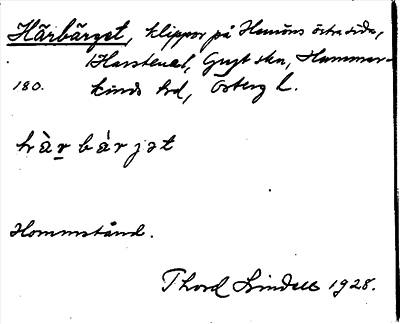 Härbärget, klippor på Hanöns östra sida,
Harstena, Gryt skn, Hammar-
180. kinds hd, Österg l.
hàr bár jət
Hommstånd.
Thord Lindell 1928.